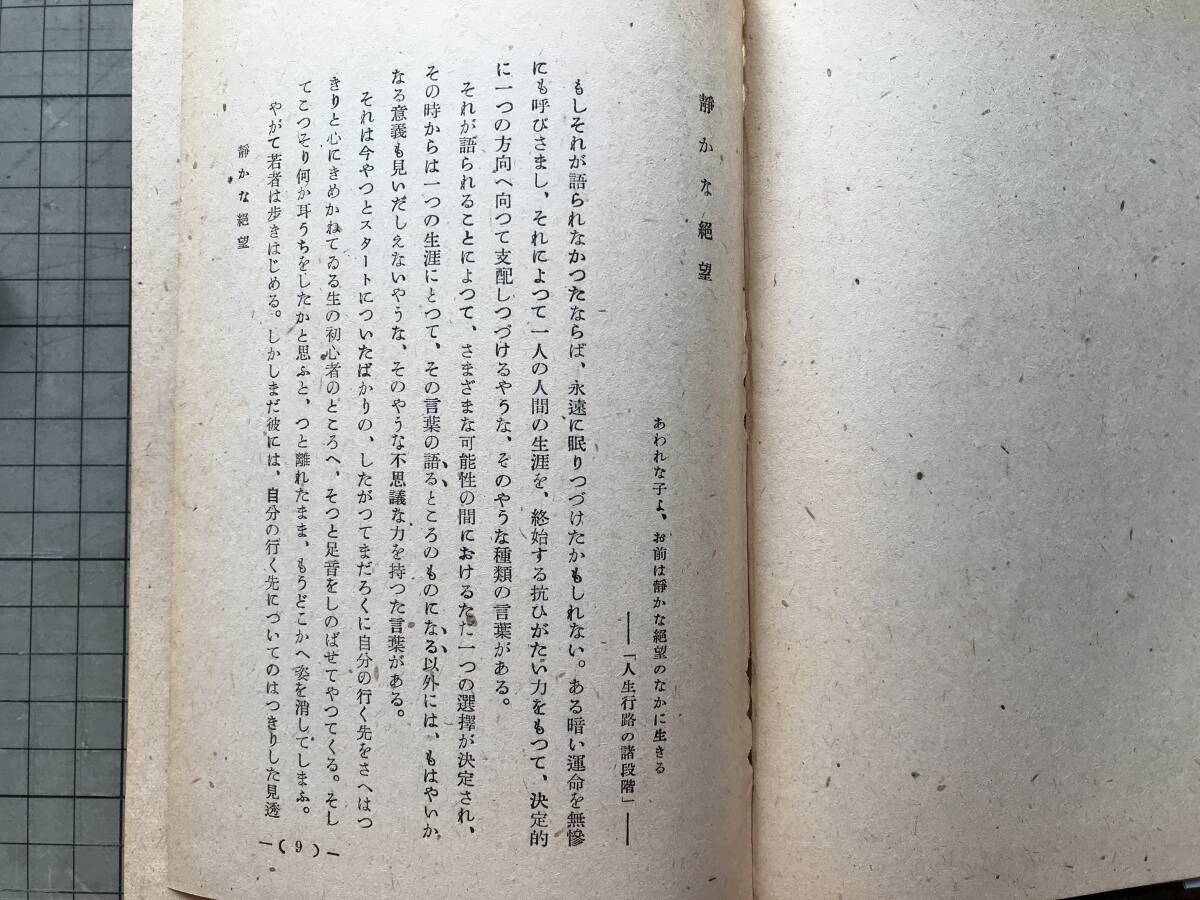 靜かな絕望
あわれな子よ、お前は靜かな絕望のなかに生きる
——「人生行路の諸段階」——
もしそれが語られなかつたならば、永遠に眠りつづけたかもしれない。ある暗い運命を無慘
にも呼びさまし、それによつて一人の人間の生涯を、終始する抗ひがたい力をもつて、決定的
に一つの方向へ向つて支配しつづけるやうな、そのやうな種類の言葉がある。
それが語られることによつて、さまざまな可能性の間におけるただ一つの選擇が決定され、
その時からは一つの生涯にとつて、その言葉の語るところのものになる以外には、もはやいか
なる意義も見いだしえないやうな、そのやうな不思議な力を持つた言葉がある。
それは今やつとスタートについたばかりの、したがつてまだろくに自分の行く先をさへはつ
きりと心にきめかねてゐる生の初心者のところへ、そつと足音をしのばせてやつてくる。そし
てこつそり何か耳うちをしたかと思ふと、つと離れたまま、もうどこかへ姿を消してしまふ。
やがて若者は歩きはじめる。しかしまだ彼には、自分の行く先についてのはつきりした見透
靜かな絕望
—( 9 )—